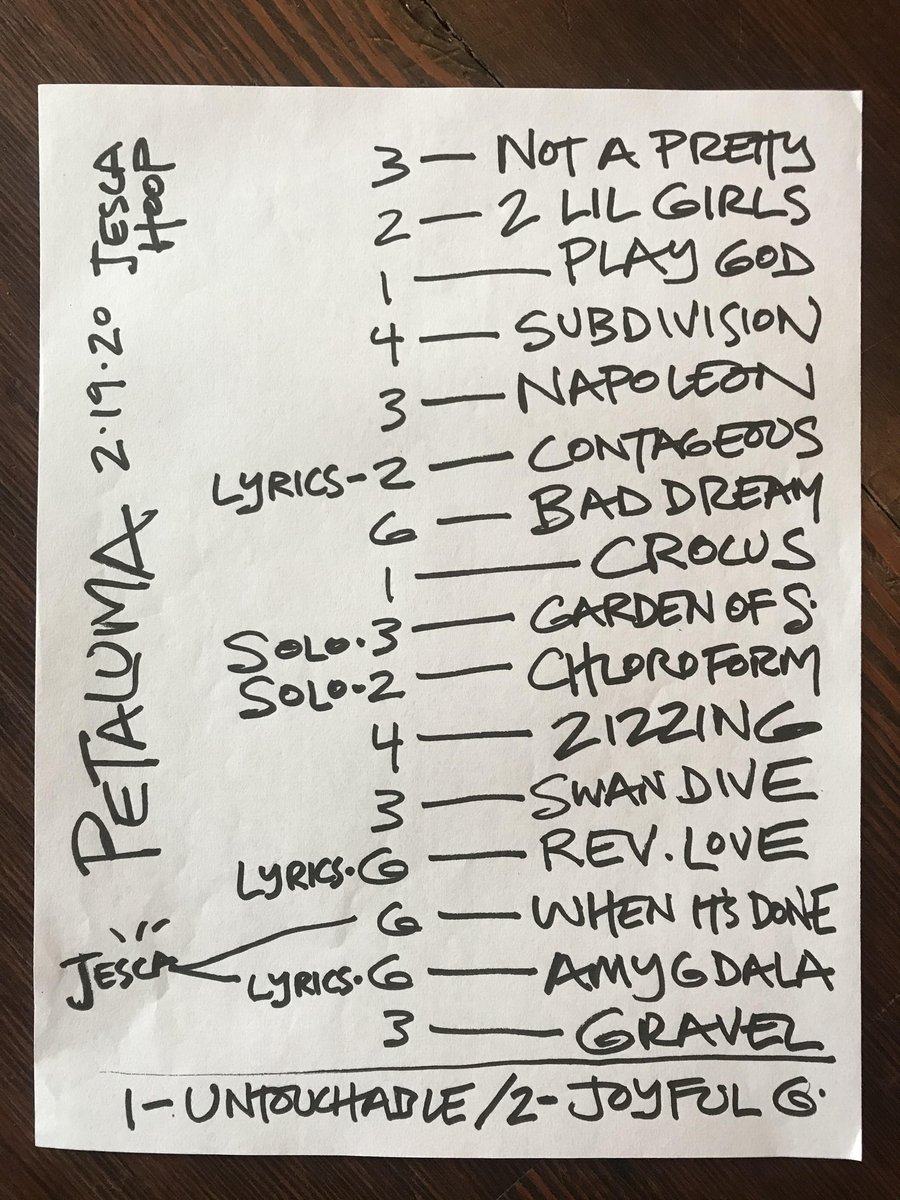 PETALUMA 2.19.20 JESCA
HOOP
3 — NOT A PRETTY
2 — 2 LIL GIRLS
1 — PLAY GOD
4 — SUBDIVISION
3 — NAPOLEON
LYRICS-2 — CONTAGEOUS
6 — BAD DREAM
1 — CROCUS
SOLO.3 — GARDEN OF S.
SOLO.2 — CHLOROFORM
4 — ZIZZING
3 — SWAN DIVE
LYRICS.6 — REV. LOVE
6 — WHEN IT'S DONE
JESCA
LYRICS.6 — AMYGDALA
3 — GRAVEL
1-UNTOUCHABLE/2-JOYFUL G.